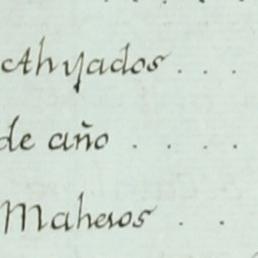 cthyados . . .
de año . . . .
Maheros . .